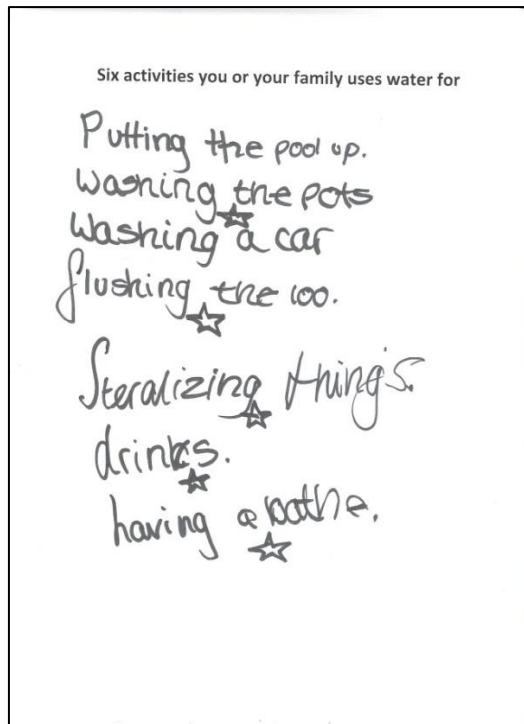 Six activities you or your family uses water for
Putting the pool up.
washing the pots
Washing a car
flushing the loo.
Steralizing things.
drinks.
having a bathe.